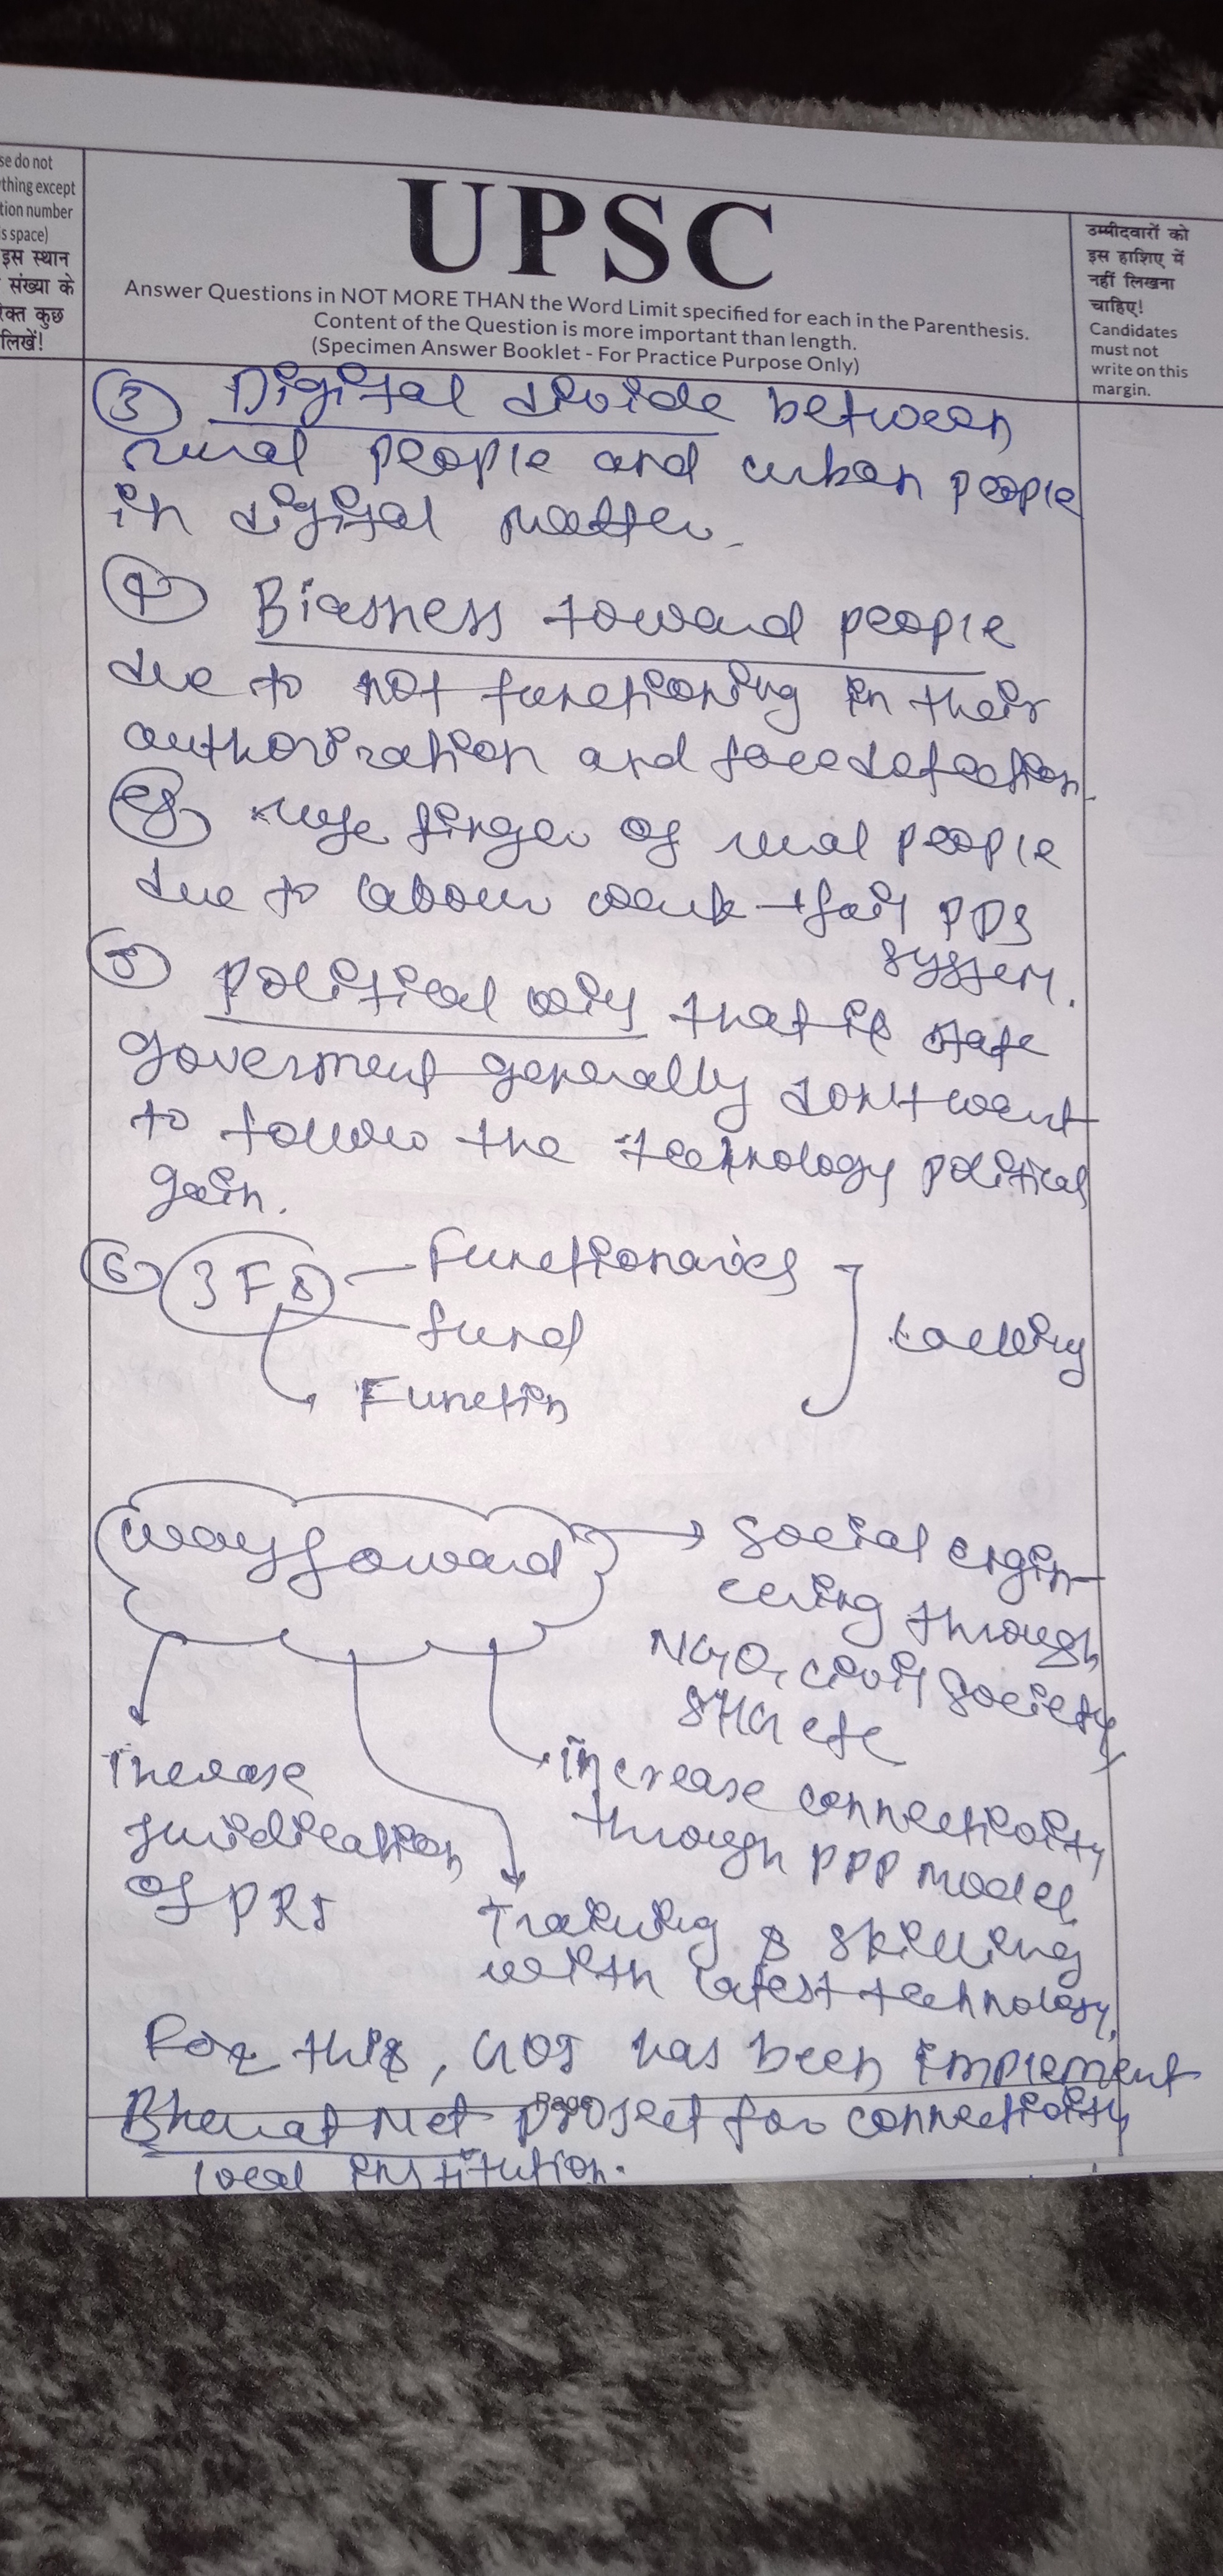 se do not
thing except
tion number
s space)
इस स्थान
संख्या के
रिक्त कुछ
लिखें!
UPSC
Answer Questions in NOT MORE THAN the Word Limit specified for each in the Parenthesis.
Content of the Question is more important than length.
(Specimen Answer Booklet - For Practice Purpose Only)
उम्मीदवारों को
इस हाशिए में
नहीं लिखना
चाहिए!
Candidates
must not
write on this
margin.
③ Digital divide between
rural people and urban people
in digital matter.
④ Biasness toward people
due to not functioning in their
authorization and face detection.
eg finger of rural people
due to labour work → fail PDS
system.
⑤ Political will that is state
goverment generally don't want
to follow the technology political
gain.
⑥ 3 Fs — Functionaries
fund
Functin
lacking
way foward → social engin-
eering through
NGO, civil society
SHG etc
Increase
juridication
of PRI
increase connectivity
through PPP model
Training & skilling
with latest technology.
For this, GOI has been implement
Bharat Net project for connectivity
Page
local institution.